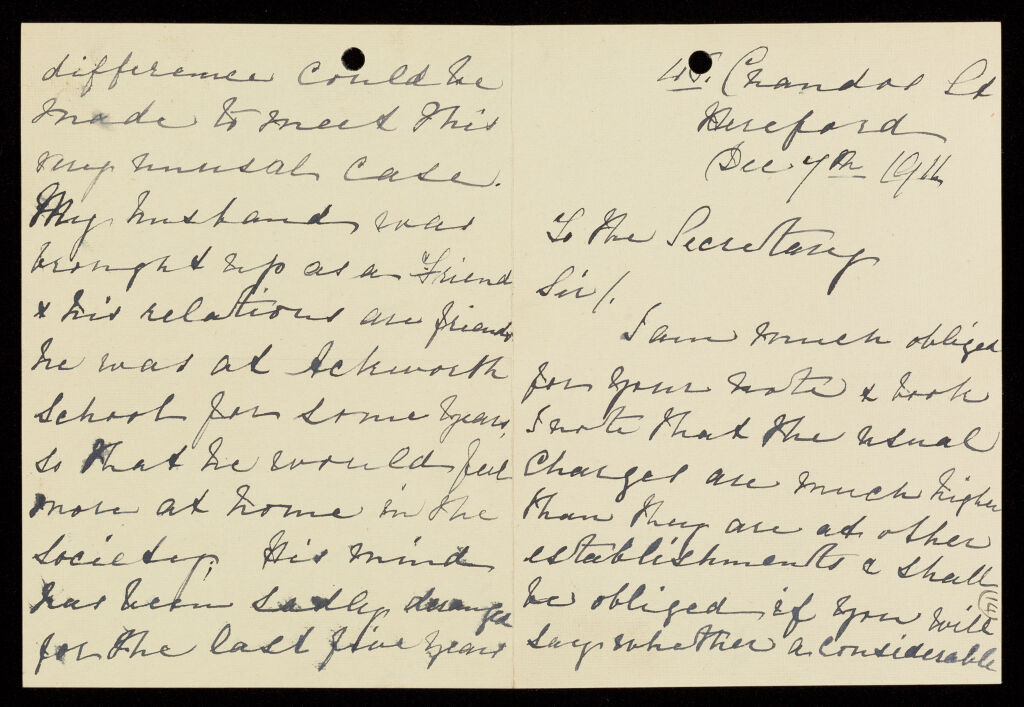 Chandos St
Hereford
Dec 7th 1911
To the Secretary
Sir/.
I am much obliged
for your note & book
I note that the usual
Charges are much higher
than they are at other
establishments & shall
be obliged if you will
say whether a considerable
difference could be
made to meet this
very unusal case.
My husband was
brought up as a Friend
& his relations are friends
he was at Ackworth
School for some years,
so that he would feel
more at home in the
society; His mind
has been sadly deranged
for the last five years